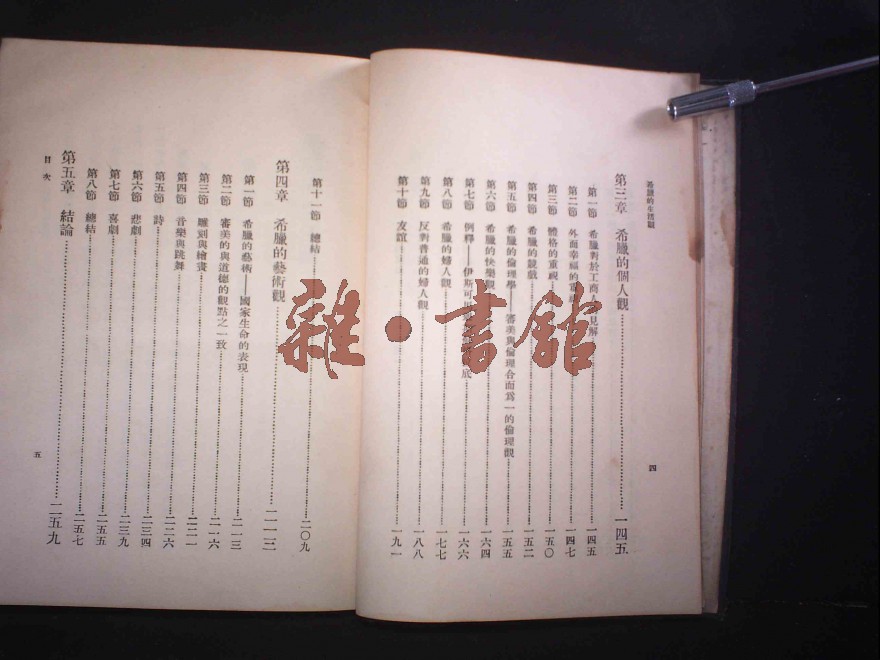 希臘的生活觀
四
第三章 希臘的個人觀……一四五
第一節 希臘對於工商見解……一四五
第二節 外面幸福的重……一四七
第三節 體格的重視……一五〇
第四節 希臘的競戲……一五二
第五節 希臘的倫理學——審美與倫理合而爲一的倫理觀……一五五
第六節 希臘的快樂觀……一六四
第七節 例釋——伊斯可底……一六六
第八節 希臘的婦人觀……一七七
第九節 反對普通的婦人觀……一八八
第十節 友誼……一九一
第十一節 總結……二〇九
第四章 希臘的藝術觀……二一三
第一節 希臘的藝術——國家生命的表現……二一三
第二節 審美的與道德的觀點之一致……二一六
第三節 雕刻與繪畫……二二一
第四節 音樂與跳舞……二二六
第五節 詩……二三四
第六節 悲劇……二三九
第七節 喜劇……二五五
第八節 總結……二五七
第五章 結論……二五九
目次
五
雜·書館